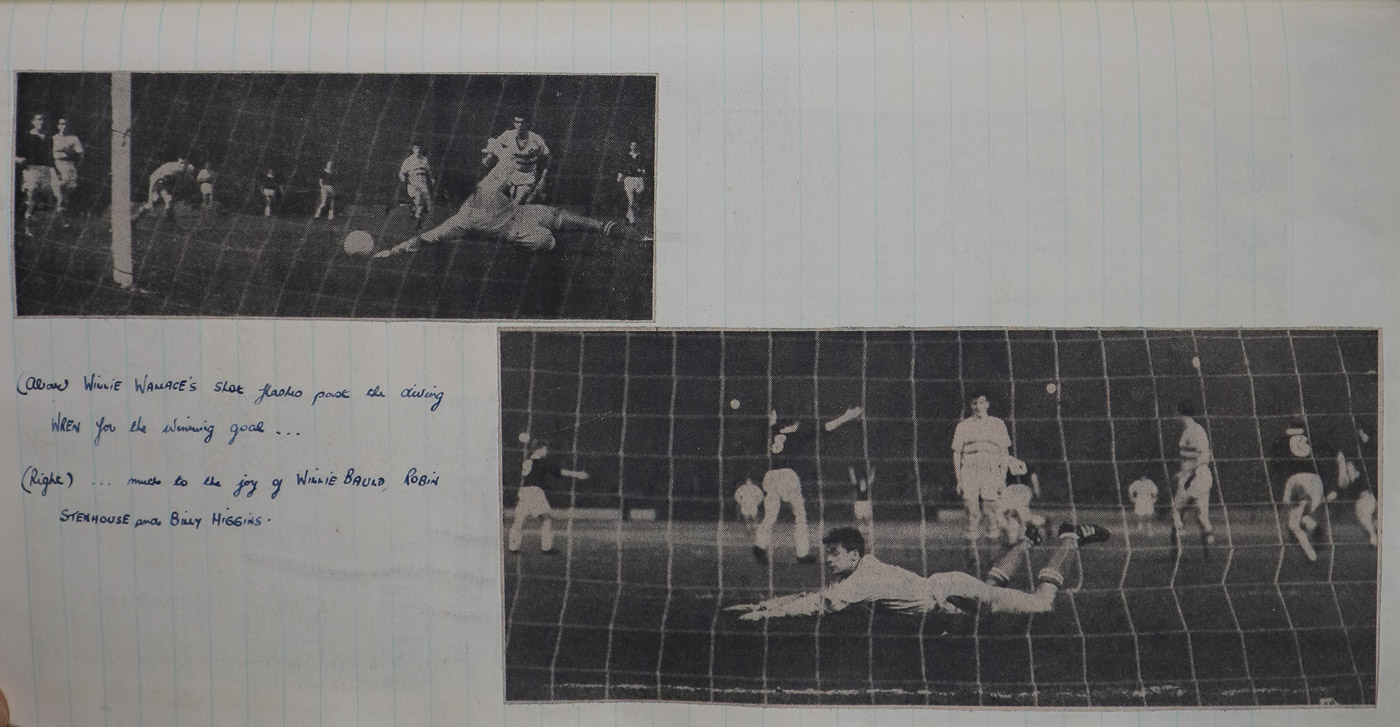 (Above) WILLIE WALLACE'S shot flashes past the diving
WREN for the winning goal ...
(Right) ... much to the joy of WILLIE BAULD, ROBIN
STENHOUSE and BILLY HIGGINS.
6